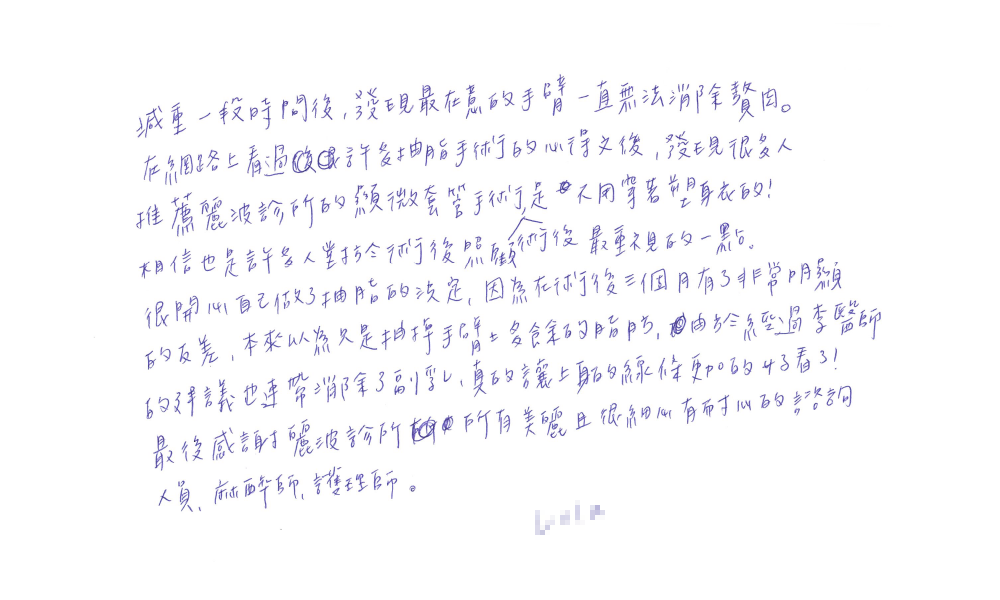 減重一段時間後，發現最在意的手臂一直無法消除贅肉。
在網路上看過許多抽脂手術的心得文後，發現很多人
推薦麗波診所的顯微套管手術，是不用穿著塑身衣的！
相信也是許多人對於術後照顧術後最重視的一點。
很開心自己做了抽脂的決定，因為在術後三個月有了非常明顯
的反差，本來以為只是抽掉手臂上多餘的脂肪，由於經過李醫師
的建議也連帶消除了副乳，真的讓上身的線條更加的好看了！
最後感謝麗波診所所有美麗且很細心有耐心的諮詢
人員、麻醉師、護理師。